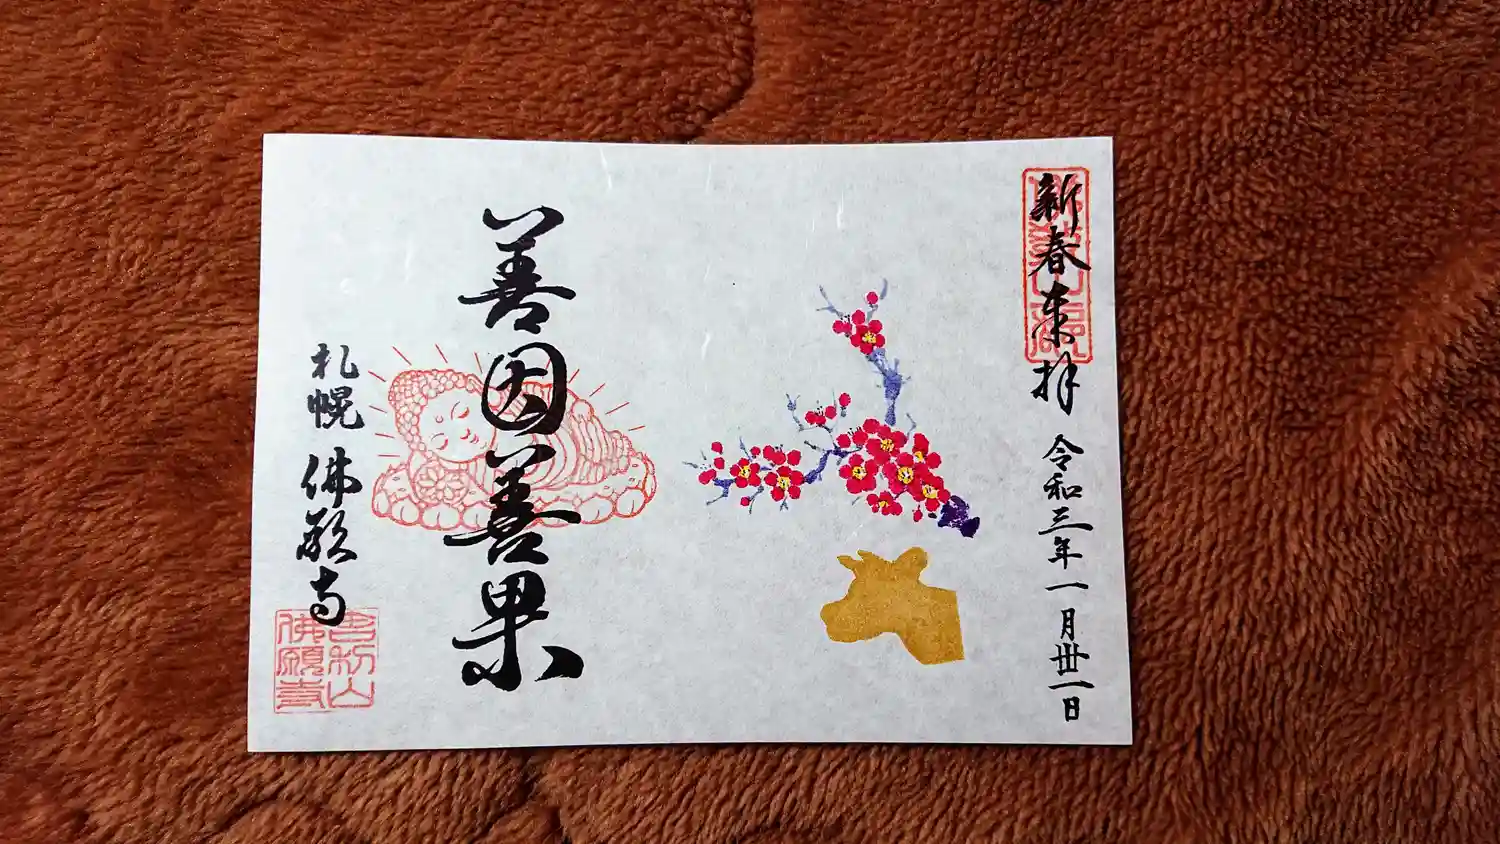 新春来拝
令和三年一月丗一日
善因善果
札幌 佛願寺
吉初山
佛願寺